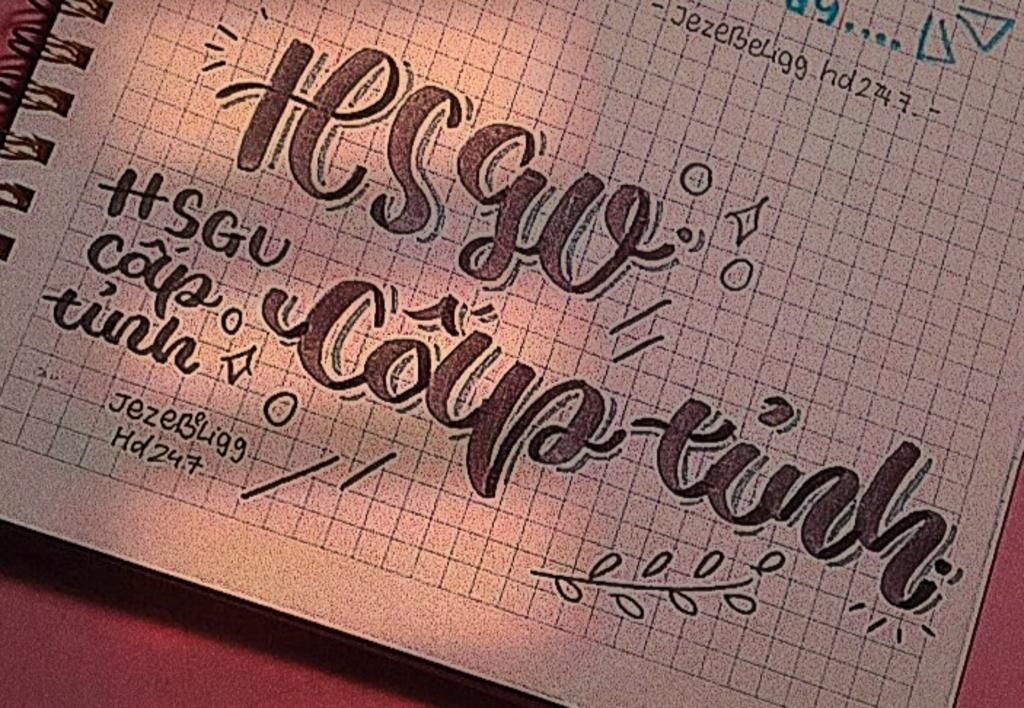 -Jezeßeligg hd247.-
HSGU
Cấp tỉnh
HSGU
Cấp
tỉnh
Jezeßeligg
Hd247